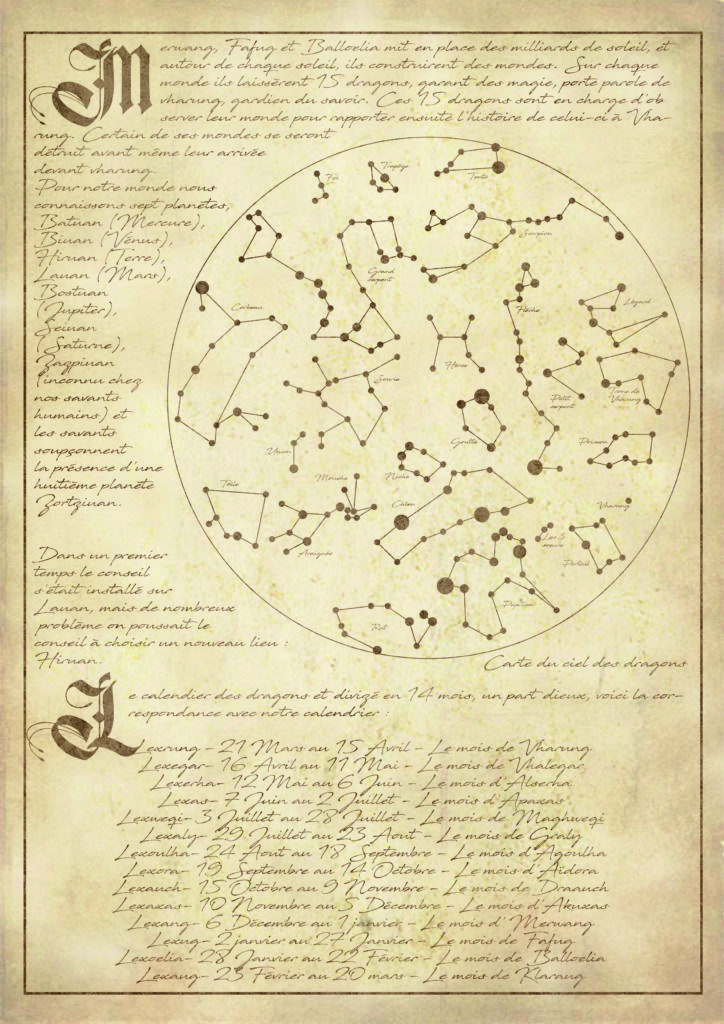 Merwang, Fafug et Balloelia mit en place des milliards de soleil, et
autour de chaque soleil, ils construirent des mondes. Sur chaque
monde ils laissèrent 15 dragons, garant des magie, porte parole de
vharung, gardien du savoir. Ces 15 dragons sont en charge d'ob
server leur monde pour rapporter ensuite l'histoire de celui-ci à Vha-
rung. Certain de ses mondes se seront
détruit avant même leur arrivée
devant vharung.
Pour notre monde nous
connaissons sept planètes,
Batuan (Mercure),
Biuan (Vénus),
Hiruan (Terre),
Lauan (Mars),
Bostuan
(Jupiter),
Seiuan
(Saturne),
Zazpiuan
(inconnu chez
nos savants
humains) et
les savants
soupçonnent
la présence d'une
huitième planète
Zortziuan.
Dans un premier
temps le conseil
s'était installé sur
Lauan, mais de nombreux
problème on poussait le
conseil à choisir un nouveau lieu :
Hiruan.
Feu
Tortue
Scorpion
Grand
serpent
Corbeau
Flèche
Lézard
Souris
Petit
serpent
Trone de
Vharung
Goutte
Poisson
Mouche
Chien
Araignée
Vharung
Les 3
Papillon
Rat
Carte du ciel des dragons
Le calendier des dragons et divizé en 14 mois, un part dieux, voici la cor-
respondance avec notre calendrier :
Lexrung - 21 Mars au 15 Avril - Le mois de Vharung
Lexegar - 16 Avril au 11 Mai - Le mois de Vhalegar
Lexerha - 12 Mai au 6 Juin - Le mois d'Alserha
Lexas - 7 Juin au 2 Juillet - Le mois d'Apaxas
Lexwegi - 3 Juillet au 28 Juillet - Le mois de Maghwegi
Lexaly - 29 Juillet au 23 Aout - Le mois de Graly
Lexoulha - 24 Aout au 18 Septembre - Le mois d'Agoulha
Lexora - 19 Septembre au 14 Octobre - Le mois d'Aïdora
Lexauch - 15 Octobre au 9 Novembre - Le mois de Draauch
Lexaxas - 10 Novembre au 5 Décembre - Le mois d'Akuxas
Lexang - 6 Décembre au 1 janvier - Le mois d'Merwang
Lexug - 2 janvier au 27 Janvier - Le mois de Fafug
Lexoelia - 28 Janvier au 22 Février - Le mois de Balloelia
Lexaug - 23 Février au 20 mars - Le mois de Klaraug